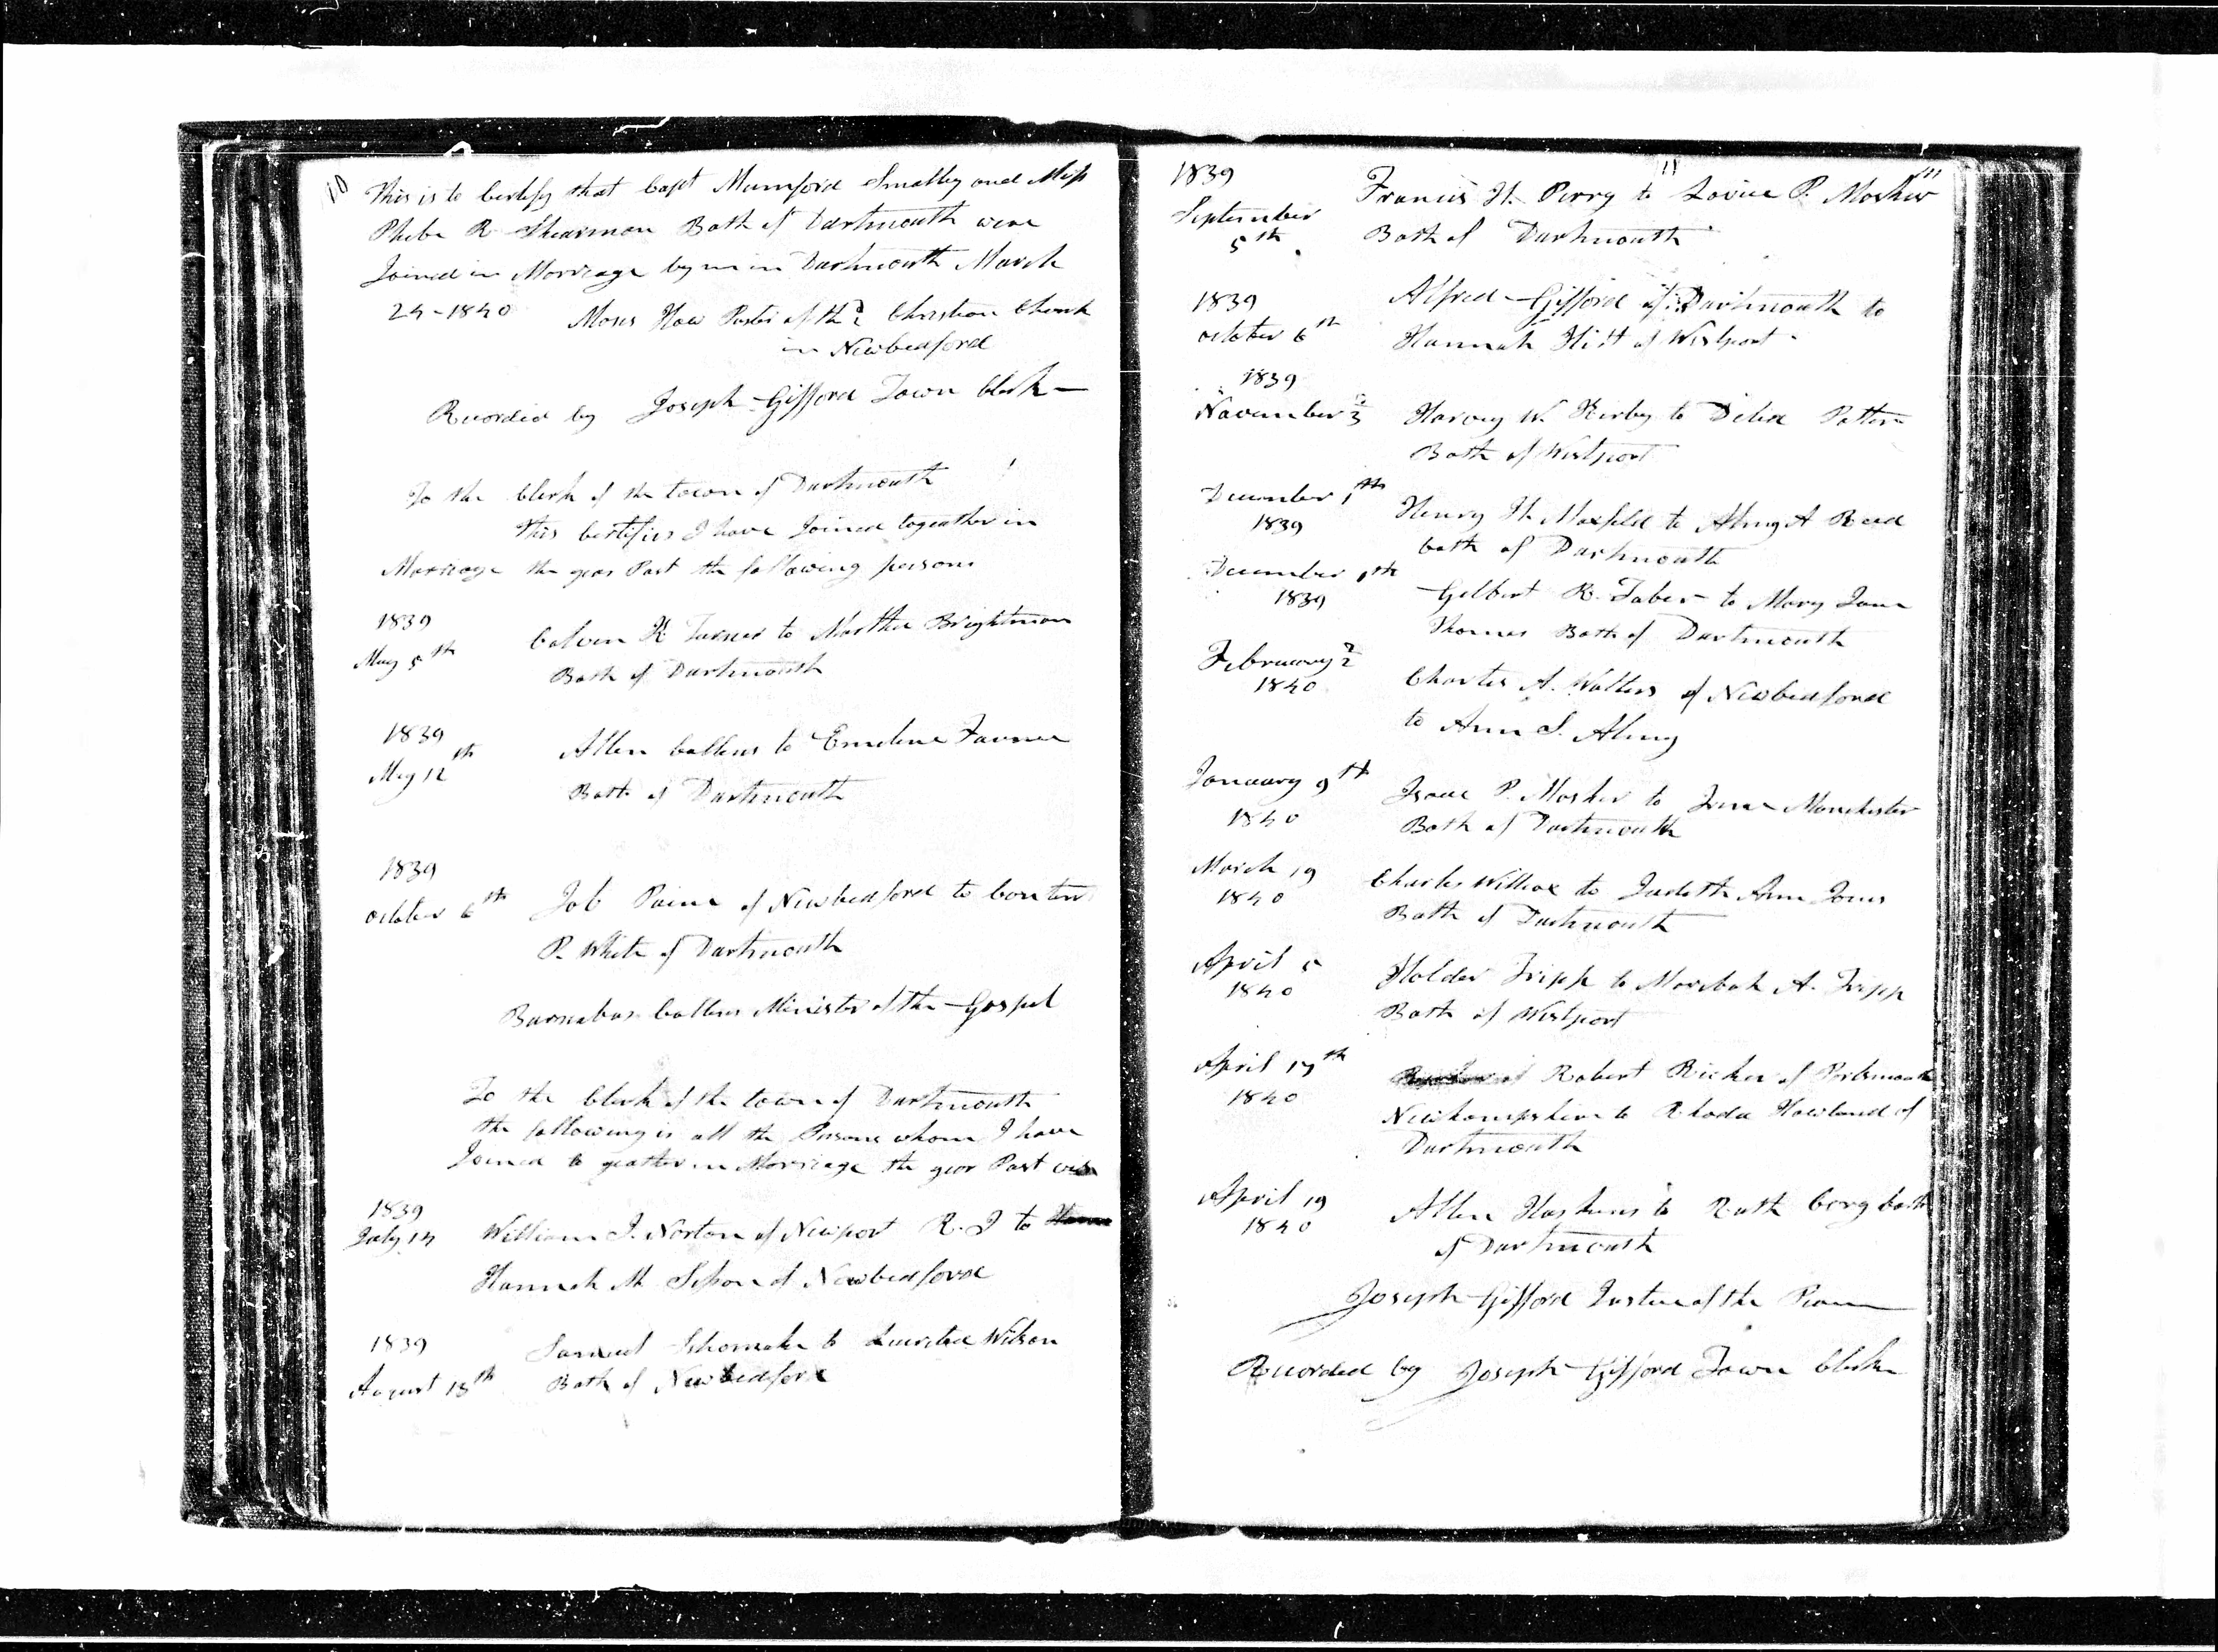 10
This is to Certify that Capt Mumford Smalley and Miss
Phebe R Shearman Both of Dartmouth were
Joined in Marriage by me in Dartmouth March
24-1840 Moses How Paster of the 2 Christian Church
in Newbedford
Recorded by Joseph Gifford Town Clerk
To the Clerk of the town of Dartmouth
This Certifies I have Joined togeather in
Marriage the year Past the following persons
1839
May 5th Calvin K Turner to Martha Brightman
Both of Dartmouth
1839
May 12th Allen Collens to Emeline
Both of Dartmouth
1839
October 6th Job Paine of Newbedford to
P. White of Dartmouth
Barnabas Collens Minister of the Gospel
To the Clerk of the town of Dartmouth
the following is all the Persons whom I have
Joined to geather in Marriage the year Past
1839
July 14 William J. Norton of Newport R. I to
Hannah M Sisson of Newbedford
1839
August 18th Samuel to Wilson
Both of Newbedford
11
1839
September
5th Francis H. Perry to Lovice P. Mosher
Both of Dartmouth
1839
October 6th Alfred Gifford of Dartmouth to
Hannah of Westport
1839
November 3 Harvey W. Kirby to Delia Potter
Both of Westport
December 1th
1839 Henry H. Maxfeld to Almy A Reed
both of Dartmouth
December 1th
1839 Gelbert R. Taber to Mary Jane
Thomas Both of Dartmouth
February 2
1840 Charles A. Walters of Newbedford
to Ann S. Almy
January 9th
1840 Isaac P. Mosher to Jane Manchester
Both of Dartmouth
March 19
1840 Charles Willcox to Judeth Ann Jones
Both of Dartmouth
April 5
1840 Holder Tripp to Meribah A. Tripp
Both of Westport
April 17th
1840 Robert Ricker of Portsmouth
Newhampshire to Rhoda Howland of
Dartmouth
April 19
1840 Allen Haskins to Ruth Cory both
of Dartmouth
Joseph Gifford Justice of the Peace
Recorded by Joseph Gifford Town Clerk